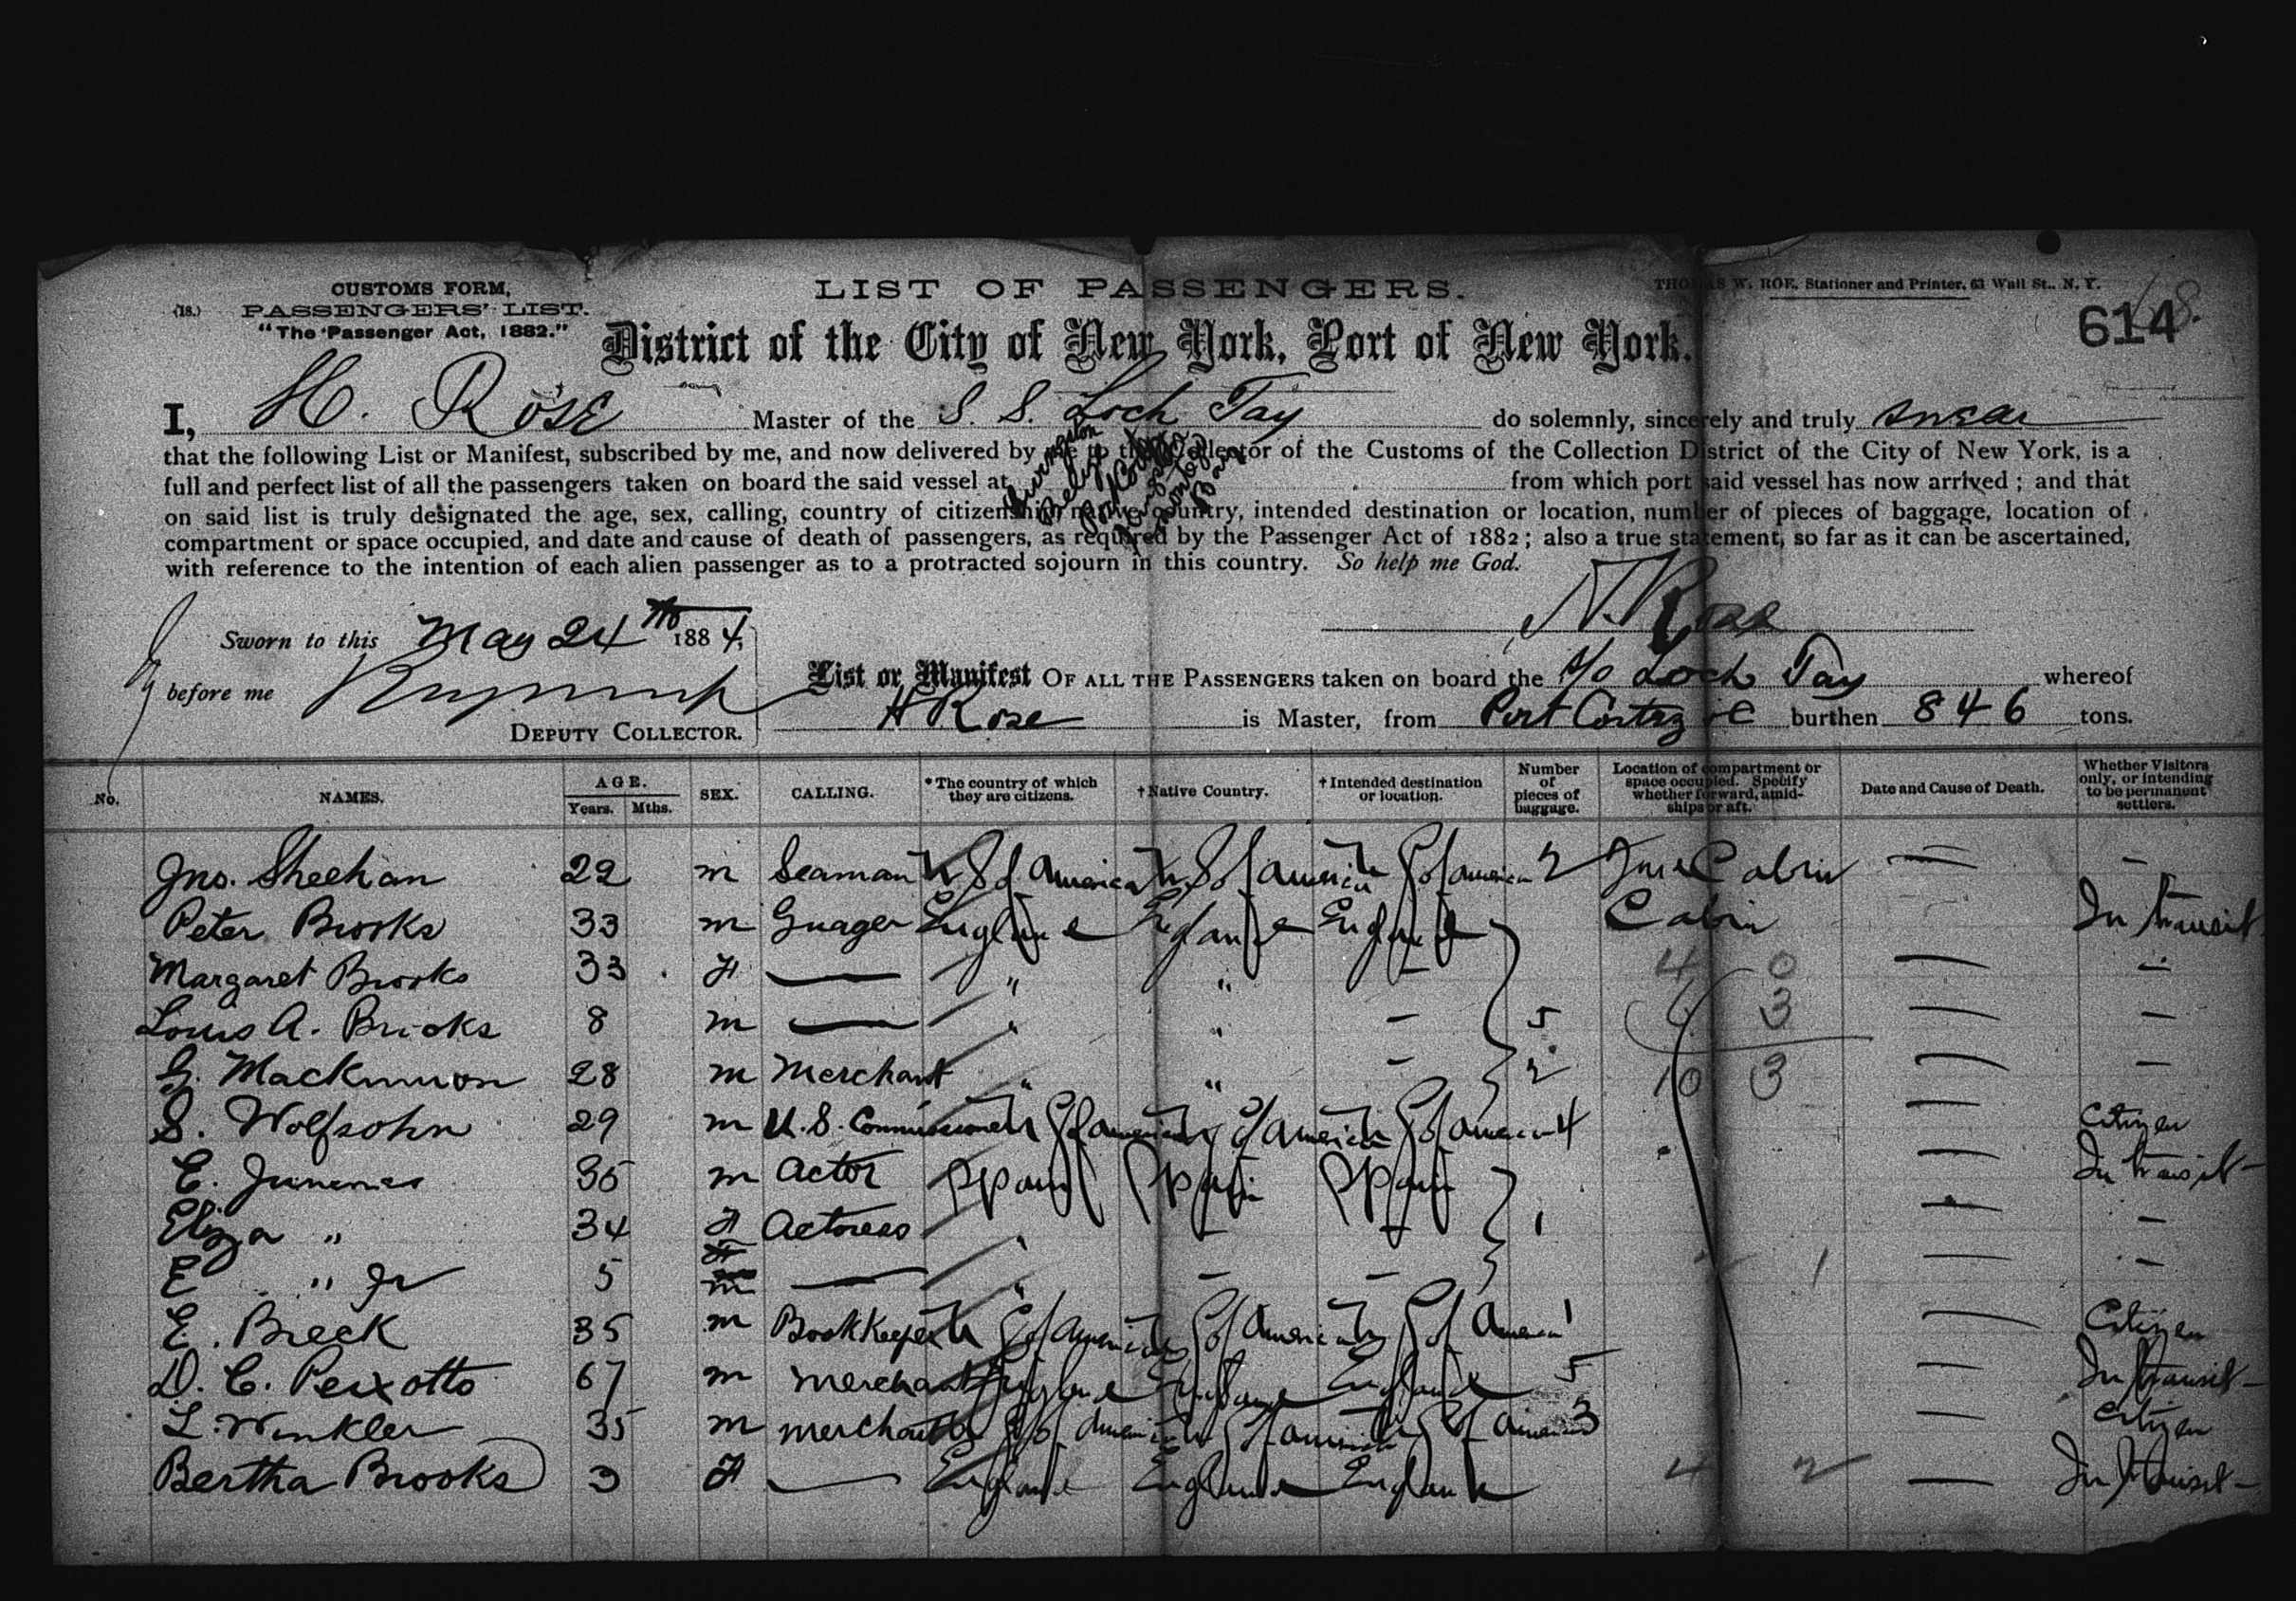 CUSTOMS FORM,
(18.) PASSENGERS' LIST.
"The Passenger Act, 1882."
LIST OF PASSENGERS.
THOMAS W. ROE, Stationer and Printer, 63 Wall St., N. Y.
614
District of the City of New York, Port of New York.
I, H. Rose Master of the S. S. Loch Tay do solemnly, sincerely and truly swear
that the following List or Manifest, subscribed by me, and now delivered by me to the Collector of the Customs of the Collection District of the City of New York, is a
full and perfect list of all the passengers taken on board the said vessel at Livingston Belize from which port said vessel has now arrived; and that
on said list is truly designated the age, sex, calling, country of citizenship, native country, intended destination or location, number of pieces of baggage, location of
compartment or space occupied, and date and cause of death of passengers, as required by the Passenger Act of 1882; also a true statement, so far as it can be ascertained,
with reference to the intention of each alien passenger as to a protracted sojourn in this country. So help me God.
H. Rose
Sworn to this May 24th 1884,
before me
DEPUTY COLLECTOR.
List or Manifest OF ALL THE PASSENGERS taken on board the S/S Loch Tay whereof
H Rose is Master, from Port Cortez burthen 846 tons.
No. NAMES. AGE. Years. Mths. SEX. CALLING. *The country of which they are citizens. †Native Country. †Intended destination or location. Number of pieces of baggage. Location of compartment or space occupied. Specify whether forward, amidships or aft. Date and Cause of Death. Whether Visitors only, or intending to be permanent settlers.
Jno. Sheehan 22 m Seaman U S of America U S of America U S of America 2 Cabin — —
Peter Brooks 33 m Guager England England England Cabin In transit
Margaret Brooks 33 F — " " — — —
Louis A. Brooks 8 m — " " — 5 — —
G. Mackinnon 28 m Merchant " " — 2 — —
S. Wolfsohn 29 m U.S. Commissioner U S of America U S of America U S of America 4 — Citizen
E. 35 m Actor Spain Spain Spain — In transit
Eliza " 34 F Actress " — — 1 — —
E " Jr 5 m — " — — — —
E. Breck 35 m Bookkeeper U S of America U S of America U S of America 1 — Citizen
D. C. Peixotto 67 m Merchant England England England 5 — In transit
L. Winkler 35 m Merchant U S of America U S of America U S of America 3 — Citizen
Bertha Brooks 3 F — England England England — In transit